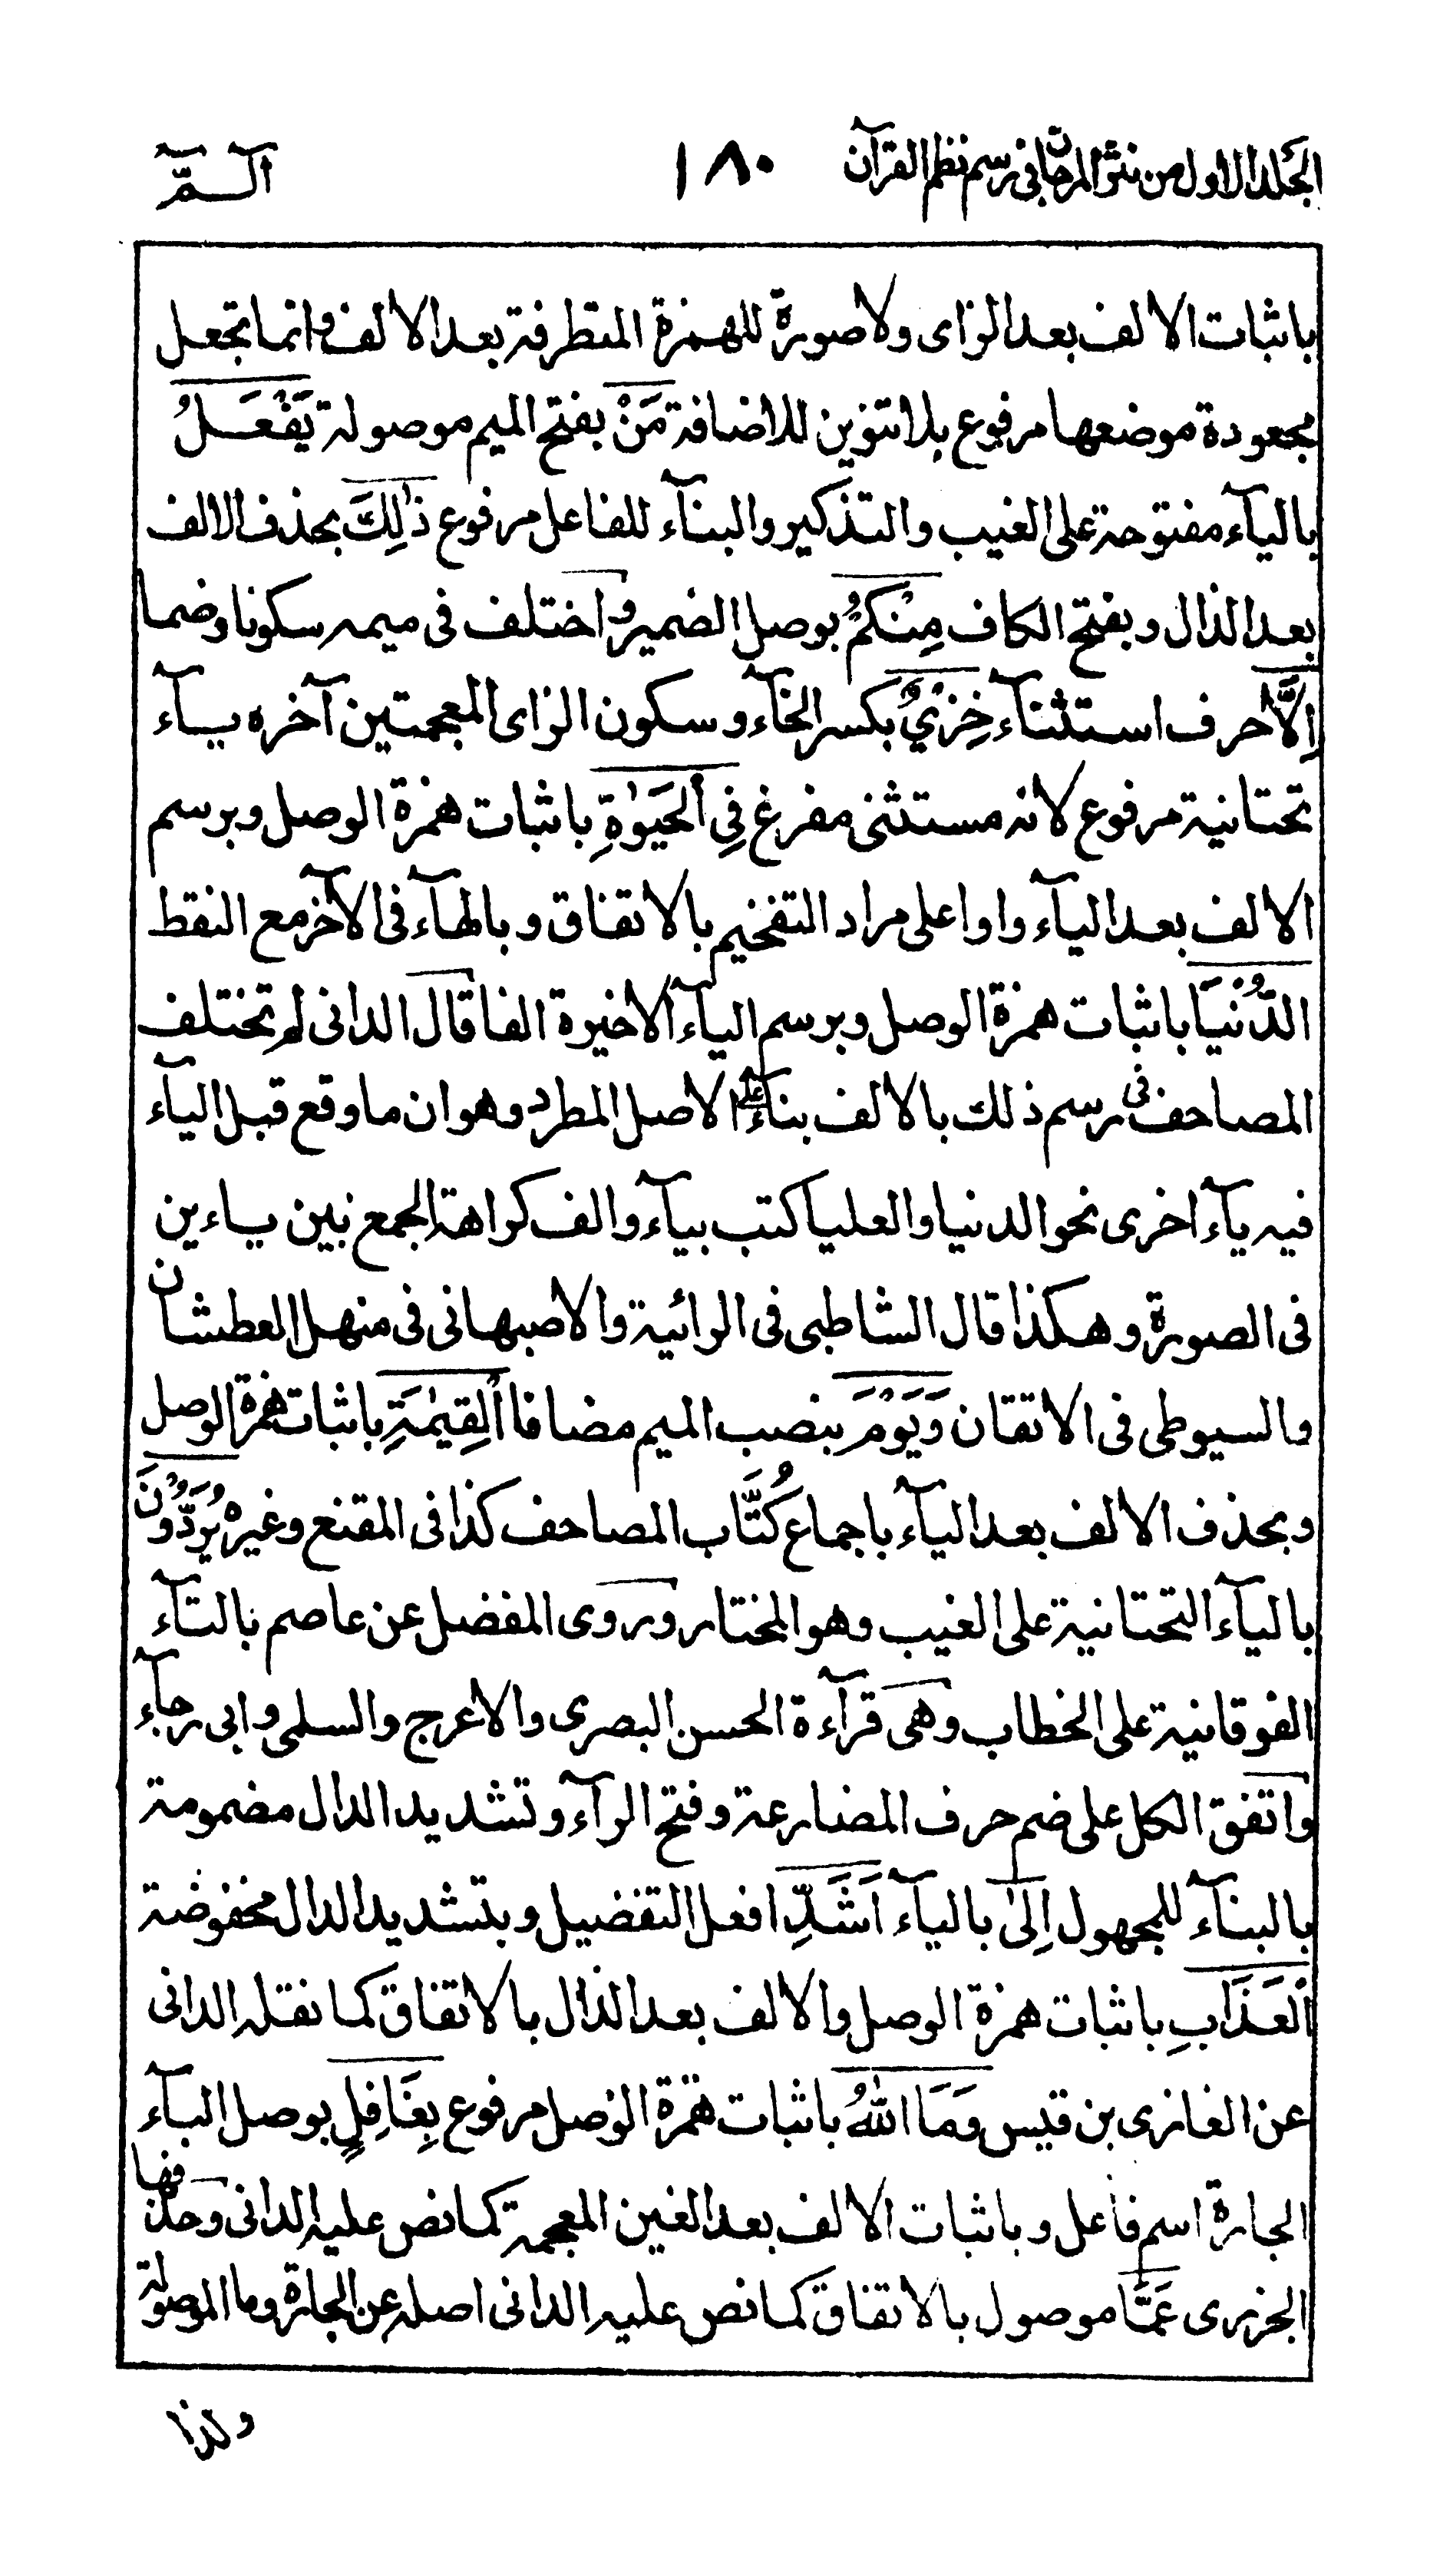 الجلد الاول من نثر المرجان فى رسم نظم القرآن
١٨٠
آلـمّ
باثبات الالف بعد الزاى ولا صورة للهمزة المتطرفة بعد الالف وانما تجعل
مجعودة موضعها مرفوع بلا تنوين للاضافة مَنْ بفتح الميم موصولة يَفْعَلُ
بالياۤء مفتوحة على الغيب والتذكير والبناۤء للفاعل مرفوع ذٰلِكَ بحذف الالف
بعد الذال وبفتح الكاف مِنْكُمْ بوصل الضمير واختلف فى ميمه سكونا وضما
اِلَّا حرف استثناۤء خِزْيٌ بكسر الخاۤء وسكون الزاى المعجمتين آخره ياۤء
تحتانية مرفوع لانه مستثنى مفرغ فِي الْحَيٰوةِ باثبات همزة الوصل وبرسم
الالف بعد الياۤء واوا على مراد التفخيم بالاتفاق وبالهاۤء فى الآخر مع النقط
الدُّنْيَا باثبات همزة الوصل وبرسم الياۤء الاخيرة الفا قال الدانى لم تختلف
المصاحف فى رسم ذلك بالالف بناۤء على الاصل المطرد وهو ان ما وقع قبل الياۤء
فيه ياۤء اخرى نحو الدنيا والعليا كتب بياۤء والف كراهة الجمع بين ياءين
فى الصورة وهكذا قال الشاطبى فى الرائية والاصبهانى فى منهل العطشان
والسيوطى فى الاتقان وَيَوْمَ بنصب الميم مضافا الْقِيٰمَةِ باثبات همزة الوصل
وبحذف الالف بعد الياۤء باجماع كُتَّاب المصاحف كذا فى المقنع وغيره يُرَدُّوْنَ
بالياۤء التحتانية على الغيب وهو المختار وروى المفضل عن عاصم بالتاۤء
الفوقانية على الخطاب وهى قراۤءة الحسن البصرى والاعرج والسلمى وابى رجاۤء
واتفق الكل على ضم حرف المضارعة وفتح الراۤء وتشديد الدال مضمومة
بالبناۤء للمجهول اِلٰى بالياۤء اَشَدِّ افعل التفضيل وبتشديد الدال مخفوضة
الْعَذَابِ باثبات همزة الوصل والالف بعد الذال بالاتفاق كما نقله الدانى
عن الغازى بن قيس وَمَا اللّٰهُ باثبات همزة الوصل مرفوع بِغَافِلٍ بوصل الباۤء
الجارة اسم فاعل وباثبات الالف بعد الغين المعجمة كما نص عليه الدانى وحذفها
الجزرى عَمَّا موصول بالاتفاق كما نص عليه الدانى اصله عن الجارة وما الموصولة
ولذا